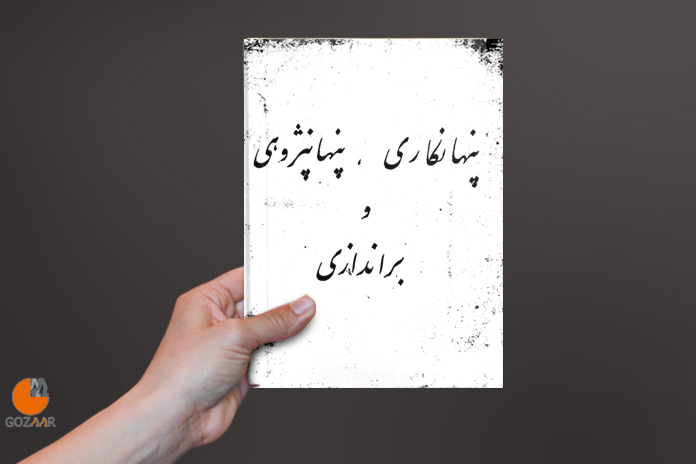 پنهانکاری ، پنهانپژوهی
و
براندازی
GOZAAR